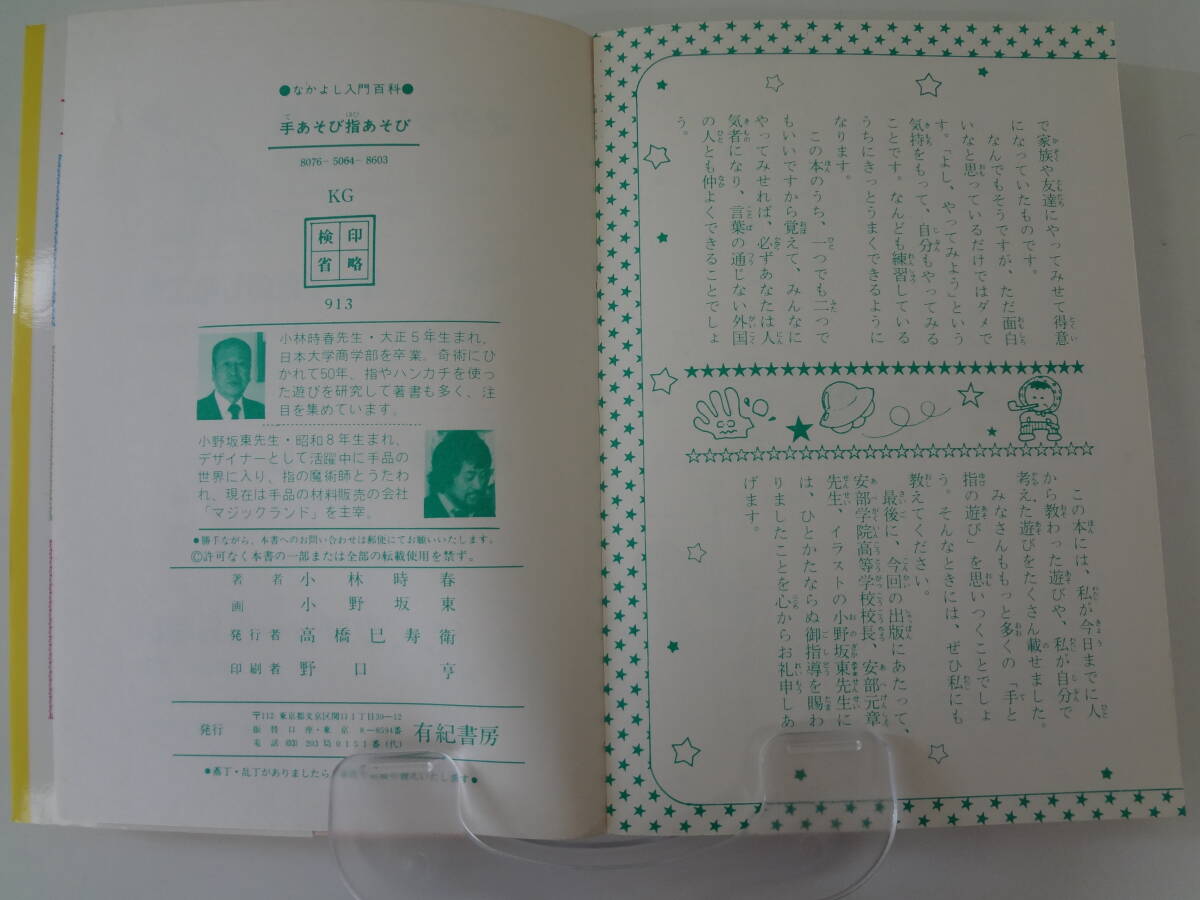 で家族や友達にやってみせて得意
になっていたものです。
なんでもそうですが、ただ面白
いなと思っているだけではダメで
す。「よし、やってみよう」という
気持をもって、自分もやってみる
ことです。なんども練習している
うちにきっとうまくできるように
なります。
この本のうち、一つでも二つで
もいいですから覚えて、みんなに
やってみせれば、必ずあなたは人
気者になり、言葉の通じない外国
の人とも仲よくできることでしょ
う。
この本には、私が今日までに人
から教わった遊びや、私が自分で
考えた遊びをたくさん載せました。
みなさんももっと多くの「手と
指の遊び」を思いつくことでしょ
う。そんなときには、ぜひ私にも
教えてください。
最後に、今回の出版にあたって、
安部学院高等学校校長、安部元章
先生、イラストの小野坂東先生に
は、ひとかたならぬ御指導を賜わ
りましたことを心からお礼申しあ
げます。
●なかよし入門百科●
手あそび指あそび
8076-5064-8603
KG
検印
省略
913
小林時春先生・大正5年生まれ、
日本大学商学部を卒業。奇術にひ
かれて50年、指やハンカチを使っ
た遊びを研究して著書も多く、注
目を集めています。
小野坂東先生・昭和8年生まれ、
デザイナーとして活躍中に手品の
世界に入り、指の魔術師とうたわ
れ、現在は手品の材料販売の会社
「マジックランド」を主宰。
●勝手ながら、本書へのお問い合わせは郵便にてお願いいたします。
©許可なく本書の一部または全部の転載使用を禁ず。
著者 小林時春
画 小野坂東
発行者 高橋巳寿衛
印刷者 野口亨
発行
〒112 東京都文京区関口1丁目39-12
振替口座・東京 8-8594番
電話 (03) 203局0151番(代)
有紀書房
●落丁・乱丁がありましたら
いたします●